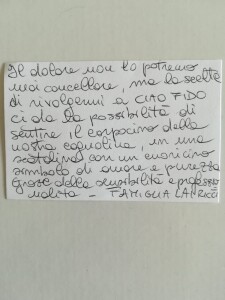 Il dolore non lo potremo
mai cancellare, ma la scelta
di rivolgermi a CIAO FIDO
ci da la possibilità di
sentire il corpicino della
nostra cagnolina, in una
scatolina con un cuoricino
simbolo di amore e purezza
Grazie della sensibilità e professio
nalità - FAMIGLIA